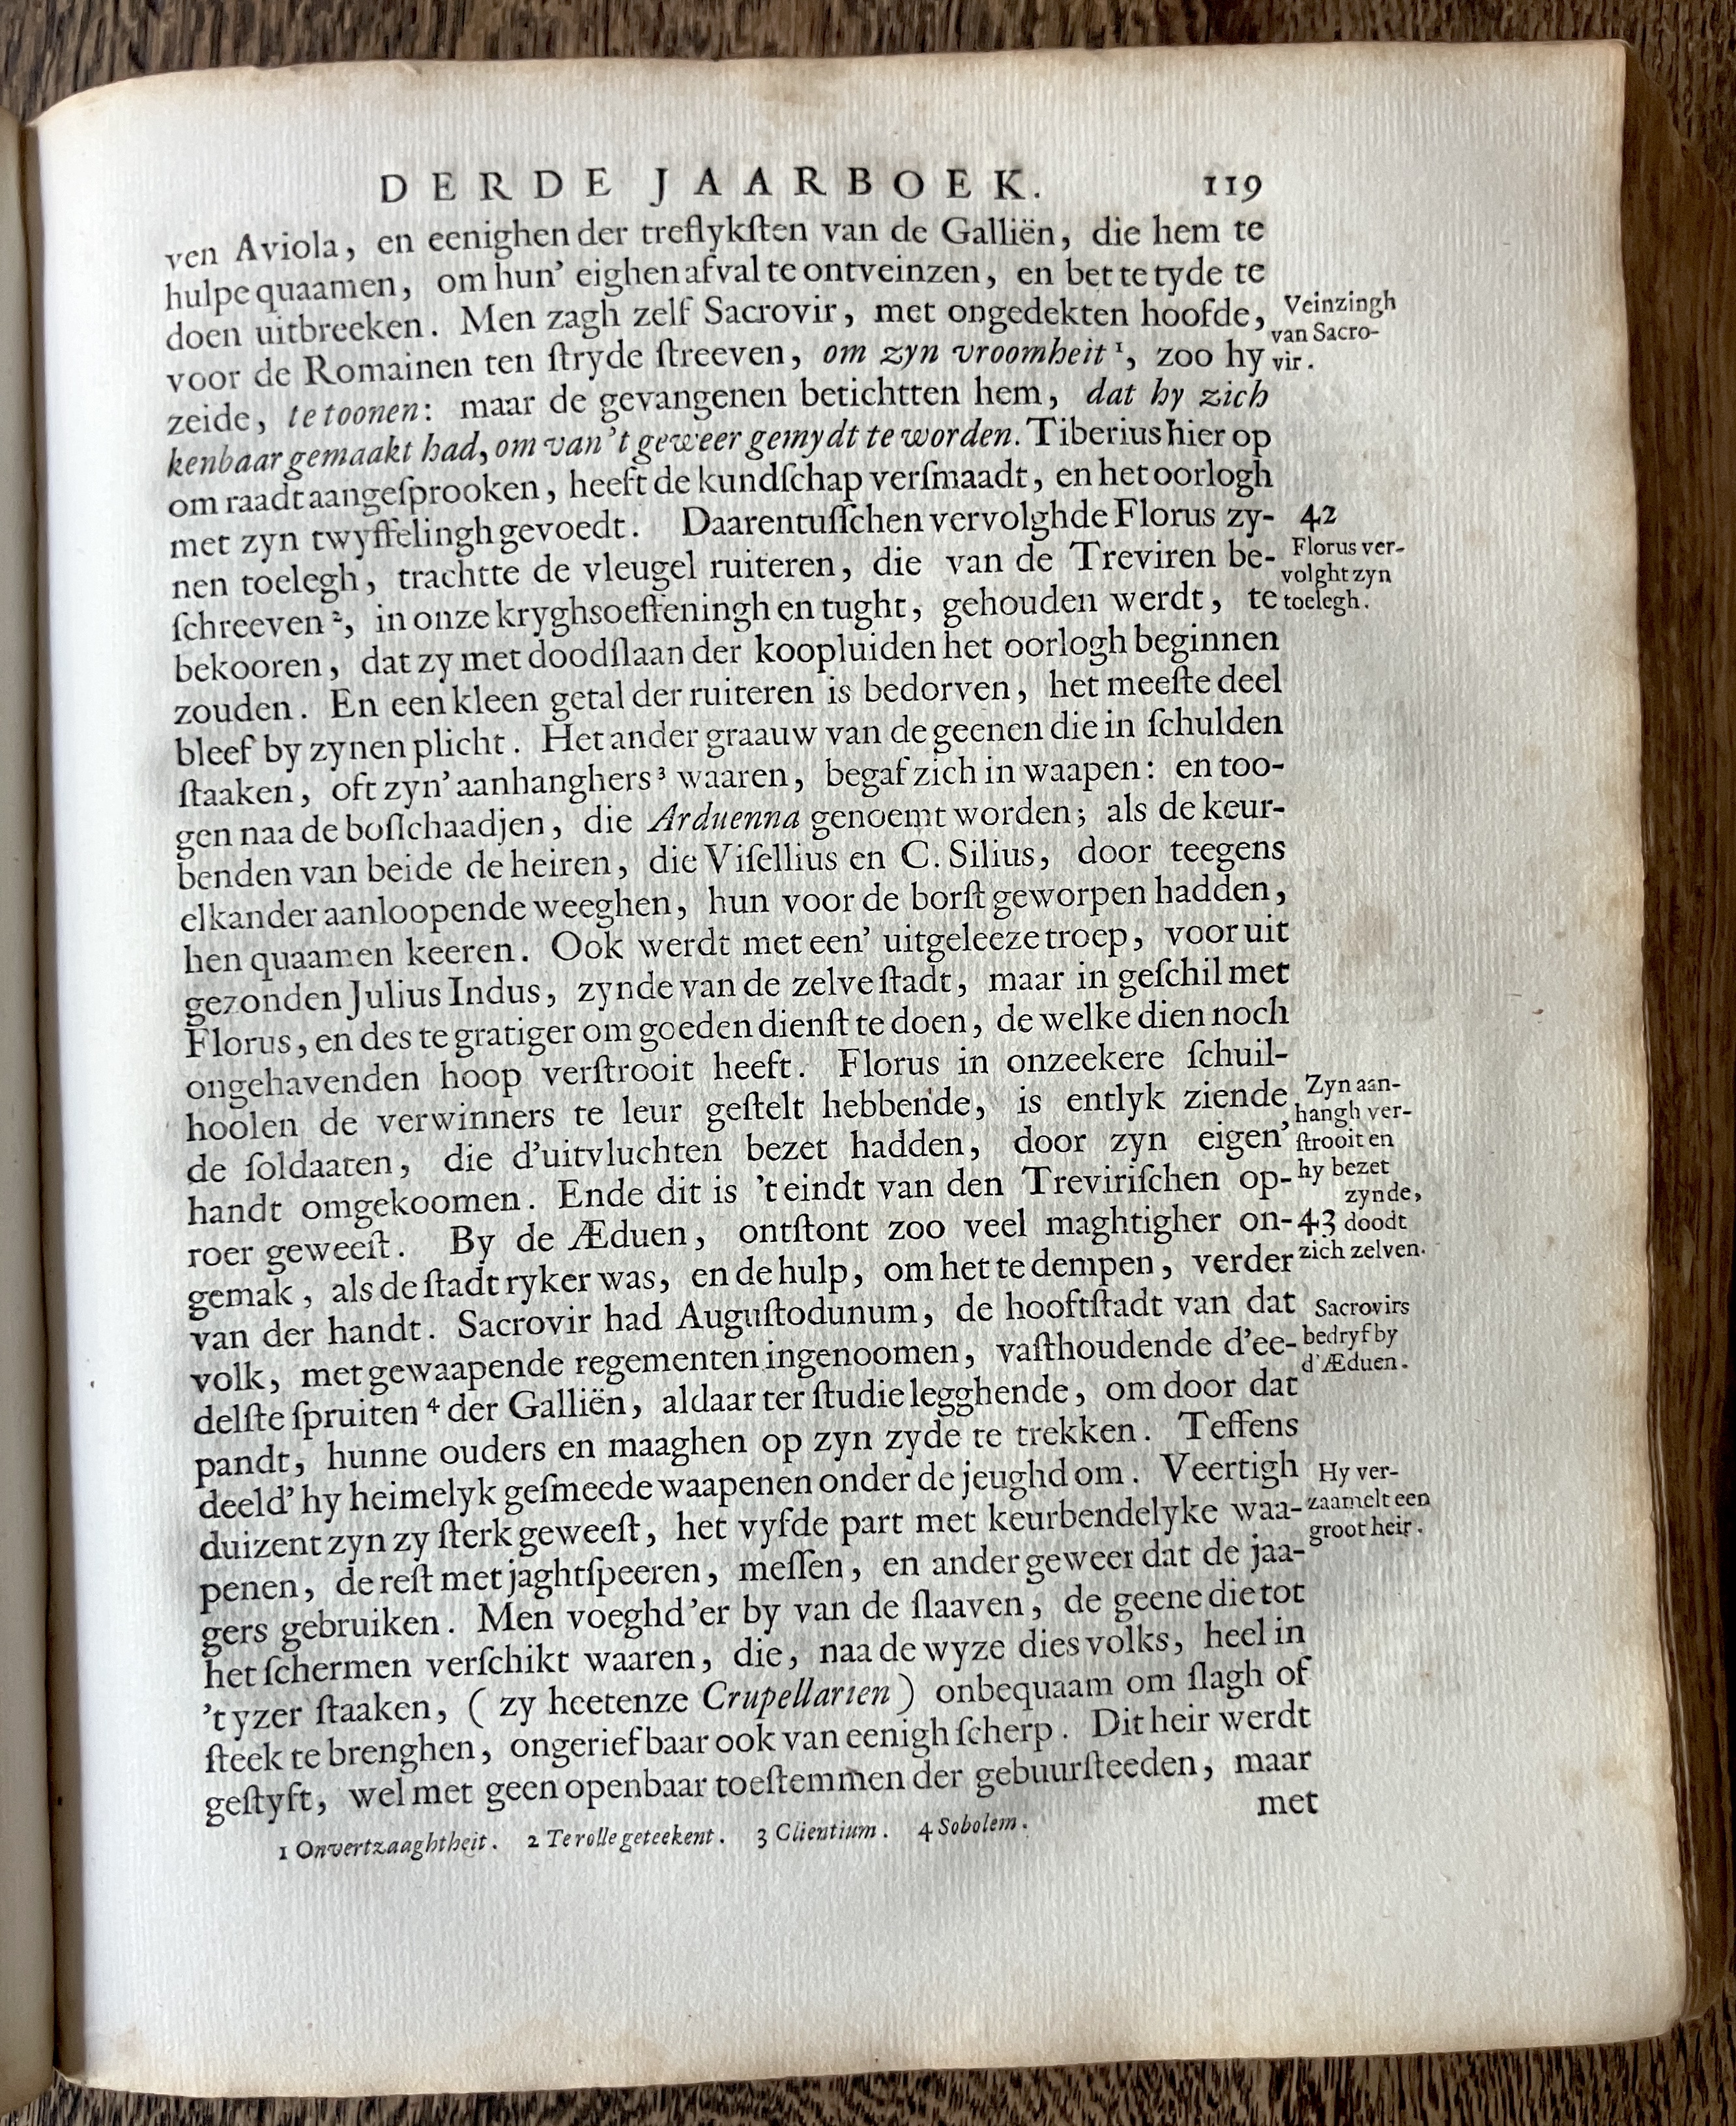 DERDE JAARBOEK. 119
ven Aviola, en eenighen der treflykſten van de Galliën, die hem te
hulpe quaamen, om hun' eighen afval te ontveinzen, en bet te tyde te
doen uitbreeken. Men zagh zelf Sacrovir, met ongedekten hoofde,
voor de Romainen ten ſtryde ſtreeven, om zyn vroomheit ¹, zoo hy
zeide, te toonen: maar de gevangenen betichtten hem, dat hy zich
kenbaar gemaakt had, om van 't geweer gemydt te worden. Tiberius hier op
om raadt aangeſprooken, heeft de kundſchap verſmaadt, en het oorlogh
met zyn twyffelingh gevoedt. Daarentuſſchen vervolghde Florus zy-
nen toelegh, trachtte de vleugel ruiteren, die van de Treviren be-
ſchreeven ², in onze kryghsoeffeningh en tught, gehouden werdt, te
bekooren, dat zy met doodſlaan der koopluiden het oorlogh beginnen
zouden. En een kleen getal der ruiteren is bedorven, het meeſte deel
bleef by zynen plicht. Het ander graauw van de geenen die in ſchulden
ſtaaken, oft zyn' aanhanghers ³ waaren, begaf zich in waapen: en too-
gen naa de boſſchaadjen, die Arduenna genoemt worden; als de keur-
benden van beide de heiren, die Viſellius en C. Silius, door teegens
elkander aanloopende weeghen, hun voor de borſt geworpen hadden,
hen quaamen keeren. Ook werdt met een' uitgeleeze troep, voor uit
gezonden Julius Indus, zynde van de zelve ſtadt, maar in geſchil met
Florus, en des te gratiger om goeden dienſt te doen, de welke dien noch
ongehavenden hoop verſtrooit heeft. Florus in onzeekere ſchuil-
hoolen de verwinners te leur geſtelt hebbende, is entlyk ziende
de ſoldaaten, die d'uitvluchten bezet hadden, door zyn eigen'
handt omgekoomen. Ende dit is 't eindt van den Treviriſchen op-
roer geweeſt. By de Æduen, ontſtont zoo veel maghtigher on-
gemak, als de ſtadt ryker was, en de hulp, om het te dempen, verder
van der handt. Sacrovir had Auguſtodunum, de hooftſtadt van dat
volk, met gewaapende regementen ingenoomen, vaſthoudende d'ee-
delſte ſpruiten ⁴ der Galliën, aldaar ter ſtudie legghende, om door dat
pandt, hunne ouders en maaghen op zyn zyde te trekken. Teffens
deeld' hy heimelyk geſmeede waapenen onder de jeughd om. Veertigh
duizent zyn zy ſterk geweeſt, het vyfde part met keurbendelyke waa-
penen, de reſt met jaghtſpeeren, meſſen, en ander geweer dat de jaa-
gers gebruiken. Men voeghd'er by van de ſlaaven, de geene die tot
het ſchermen verſchikt waaren, die, naa de wyze dies volks, heel in
't yzer ſtaaken, ( zy heetenze Crupellarien ) onbequaam om ſlagh of
ſteek te brenghen, ongerief baar ook van eenigh ſcherp. Dit heir werdt
geſtyft, wel met geen openbaar toeſtemmen der gebuurſteeden, maar
met
1 Onvertzaaghtheit. 2 Te rolle geteekent. 3 Clientium. 4 Sobolem.
Veinzingh
van Sacro-
vir.
42
Florus ver-
volght zyn
toelegh.
Zyn aan-
hangh ver-
ſtrooit en
hy bezet
zynde,
43 doodt
zich zelven.
Sacrovirs
bedryf by
d'Æduen.
Hy ver-
zaamelt een
groot heir.